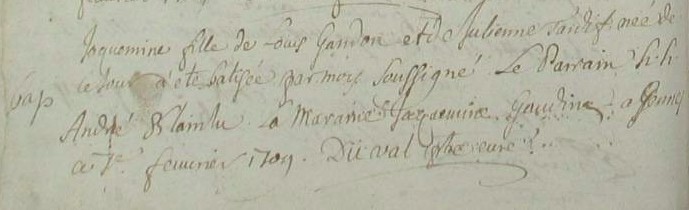 Jaquemine fille de Louis Gandon et de Julienne née de
ce jour a eté batisée par moi soussigné Le Parain h.h.
bap
André Blanlu La Maraine Jaquemine Gaudine a
ce 7e feuurier 1709. Du val curé